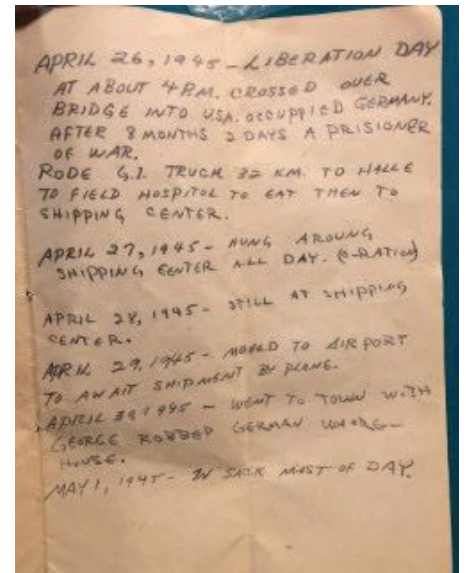 APRIL 26, 1945 - LIBERATION DAY
AT ABOUT 4 P.M. CROSSED OVER
BRIDGE INTO USA. OCCUPPIED GERMANY.
AFTER 8 MONTHS 2 DAYS A PRISIONER
OF WAR.
RODE G.I. TRUCK 32 KM. TO HALLE
TO FIELD HOSPITOL TO EAT THEN TO
SHIPPING CENTER.
APRIL 27, 1945 - HUNG AROUNG
SHIPPING CENTER ALL DAY. (C-RATION)
APRIL 28, 1945 - STILL AT SHIPPING
CENTER.
APRIL 29, 1945 - MOVED TO AIRPORT
TO AWAIT SHIPMENT BY PLANE.
APRIL 30 1945 - WENT TO TOWN WITH
GEORGE ROBBED GERMAN WARE-
HOUSE.
MAY 1, 1945 - IN SACK MOST OF DAY.